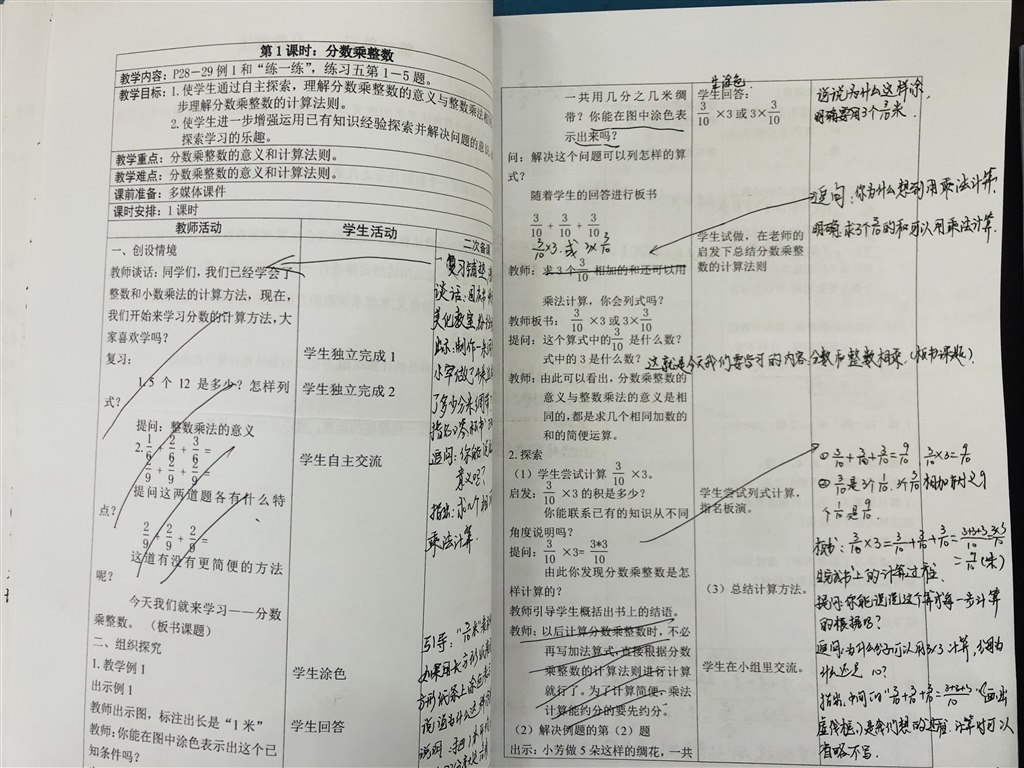 第1课时：分数乘整数
教学内容：P28－29例1和“练一练”，练习五第1－5题。
教学目标：1.使学生通过自主探索，理解分数乘整数的意义与整数乘法相同
步理解分数乘整数的计算法则。
2.使学生进一步增强运用已有知识经验探索并解决问题的意识
探索学习的乐趣。
教学重点：分数乘整数的意义和计算法则。
教学难点：分数乘整数的意义和计算法则。
课前准备：多媒体课件
课时安排：1课时
教师活动 学生活动 二次备课
一、创设情境
教师谈话：同学们，我们已经学会了
整数和小数乘法的计算方法，现在，
我们开始来学习分数的计算方法，大
家喜欢学吗？
复习：
1.5个12是多少？怎样列
式？
提问：整数乘法的意义
2. 1/6 + 2/6 + 3/6 =
2/9 + 2/9 + 2/9 =
提问这两道题各有什么特
点？
2/9 + 2/9 + 2/9 =
这道有没有更简便的方法
呢？
今天我们就来学习——分数
乘整数。（板书课题）
二、组织探究
1.教学例1
出示例1
教师出示图，标注出长是“1米”
教师：你能在图中涂色表示出这个已
知条件吗？
学生独立完成1
学生独立完成2
学生自主交流
学生涂色
学生回答
一复习铺垫
谈话：国庆节
美化教室
出示：制作一朵
小军做了
追问：你能说
意义吗？
指出：求几个相
乘法计算.
引导：
一共用几分之几米绸
带？你能在图中涂色表
示出来吗？
问：解决这个问题可以列怎样的算
式？
随着学生的回答进行板书
3/10 + 3/10 + 3/10
3/10 ×3 或 3× 3/10
教师：求3个 3/10 相加的和还可以用
乘法计算，你会列式吗？
教师板书：3/10 ×3或3× 3/10
提问：这个算式中的 3/10 是什么？
式中的3是什么数？
教师：由此可以看出，分数乘整数的
意义与整数乘法的意义是相
同的，都是求几个相同加数的
和的简便运算。
2.探索
（1）学生尝试计算 3/10 ×3。
启发：3/10 ×3的积是多少？
你能联系已有的知识从不同
角度说明吗？
提问：3/10 ×3= 3*3/10
由此你发现分数乘整数是怎
样计算的？
教师引导学生概括出书上的结语。
教师：以后计算分数乘整数时，不必
再写加法算式，直接根据分数
乘整数的计算法则进行计算
就行了。为了计算简便，乘法
计算能约分的要先约分。
（2）解决例题的第（2）题
出示：小芳做5朵这样的绸花，一共
生涂色
学生回答：
3/10 ×3或3× 3/10
学生试做，在老师的
启发下总结分数乘整
数的计算法则
学生尝试列式计算，
指名板演。
（3）总结计算方法。
学生在小组里交流。
说说为什么这样涂
明确要用3个3/10米.
追问：你为什么想到用乘法计算.
明确：求3个3/10的和可以用乘法计算.
这就是今天我们要学习的内容：分数与整数相乘.（板书课题）
① 3/10 + 3/10 + 3/10 = 9/10 3/10 ×3= 9/10
② 3/10是3个1/10. 3个3/10相加就是9
个1/10是9/10.
板书：3/10 ×3= 3/10 + 3/10 + 3/10 = 3+3+3/10 = 3×3/10
= 9/10（米）
完成书上的计算过程.
提问：你能说说这个算式每一步计算
的根据吗？
追问：为什么分子可以用3×3计算，分母为
什么还是10？
指出：中间的“3/10 + 3/10 + 3/10 = 3+3+3/10”（画出
虚线框）是我们想的过程，计算时可以
省略不写.